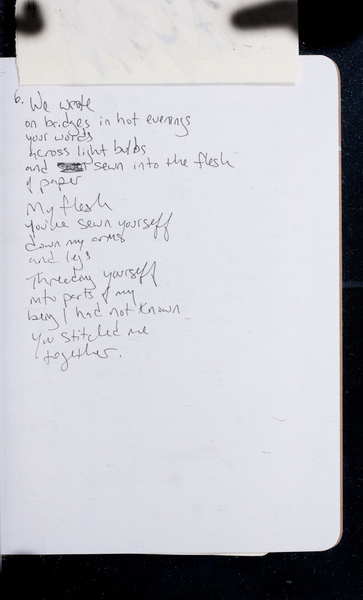 6. We wrote
on bridges in hot evenings
your words
across light bulbs
and sewn into the flesh
of paper
My flesh
you've sewn yourself
down my arms
and legs
Threading yourself
into parts of my
being I had not known
You stitched me
together.